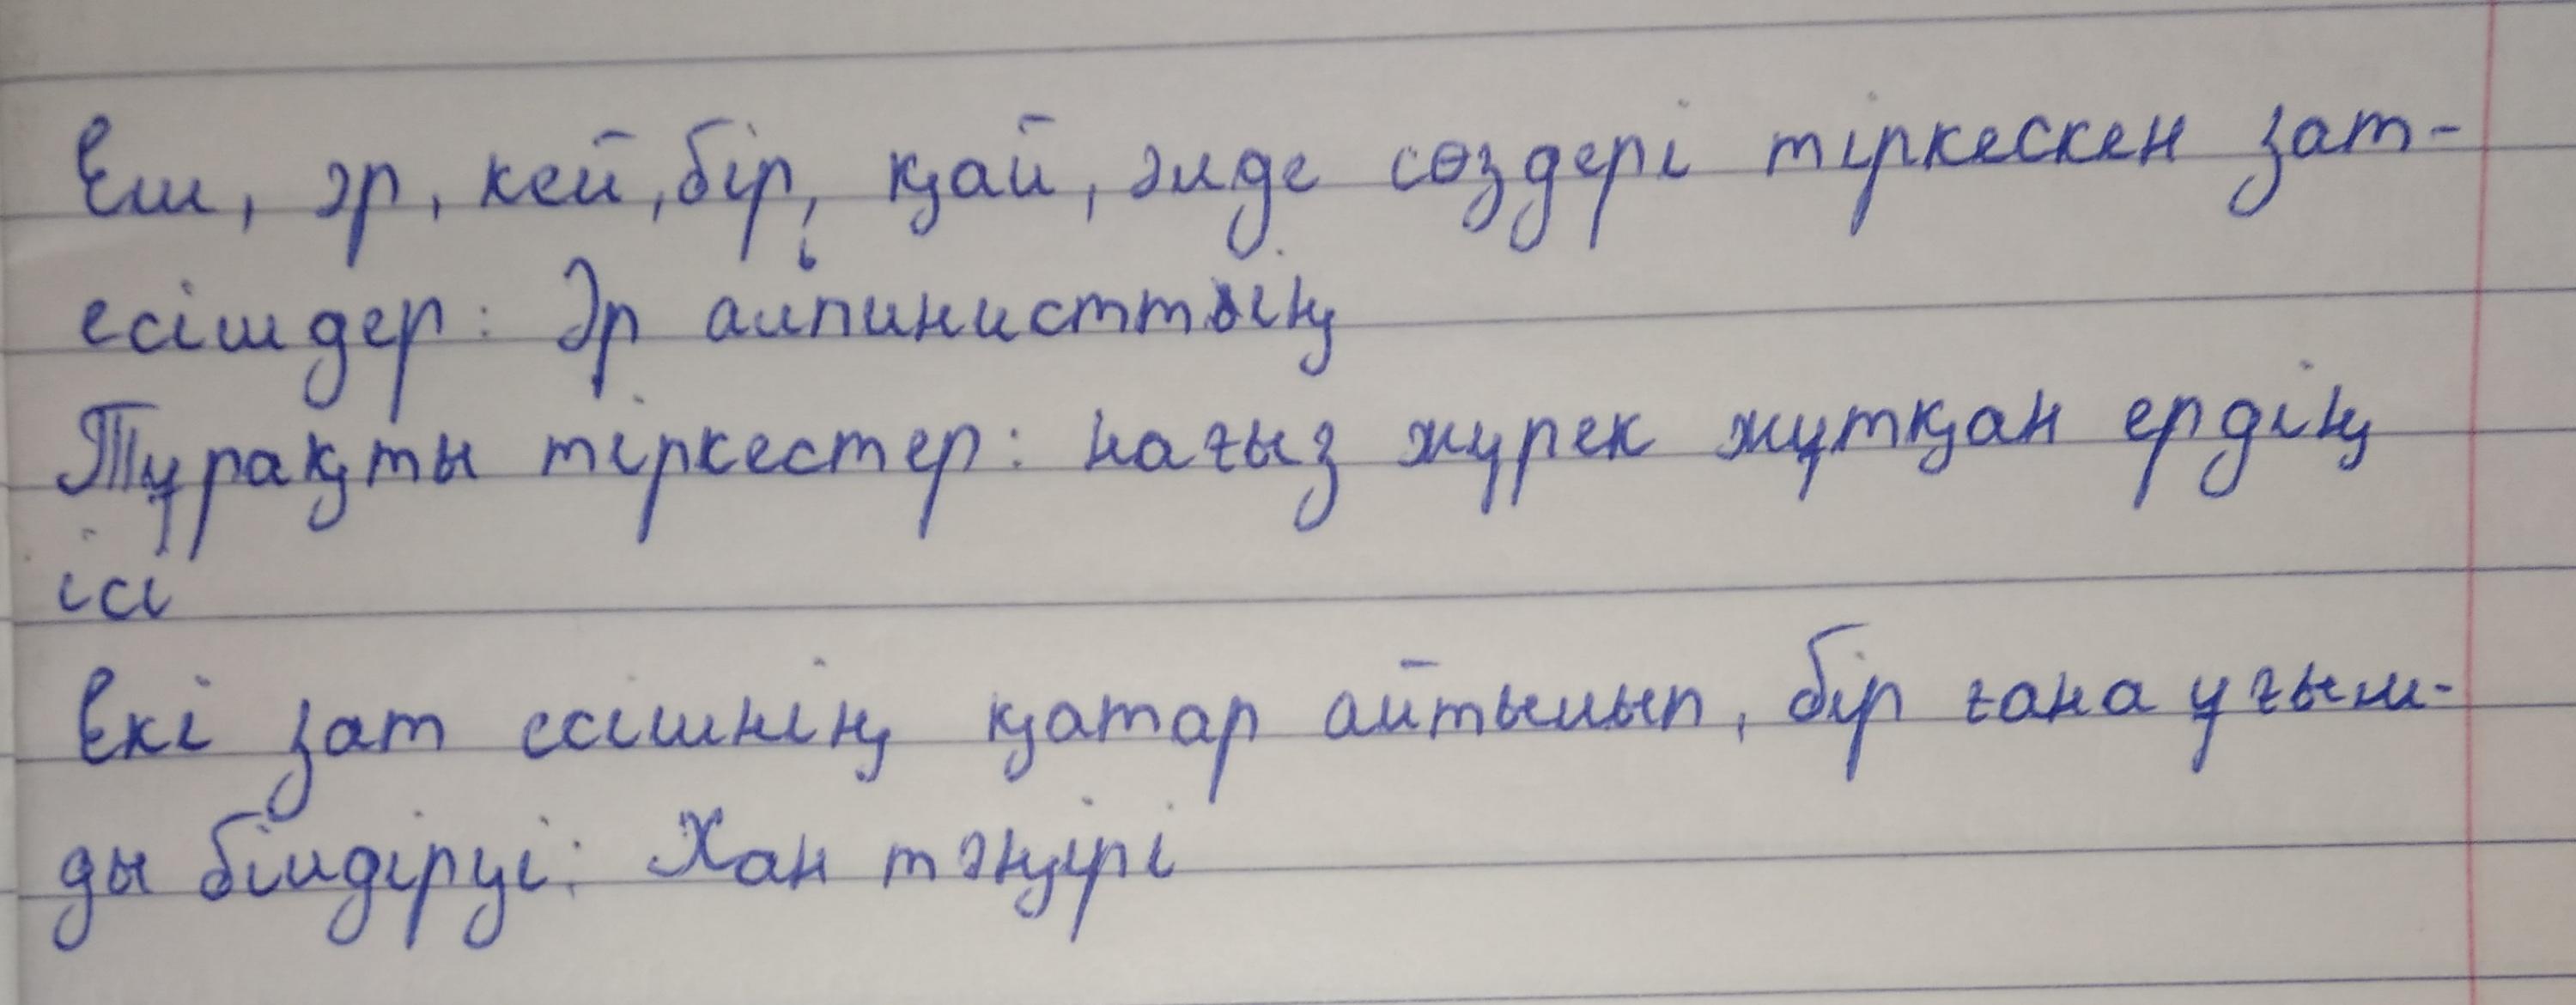 Еш, әр, кей, бір, қай, әлде сөздері тіркескен зат-
есімдер: Әр алпинисттің
Тұрақты тіркестер: нағыз жүрек жұтқан ердің
ісі
Екі зат есімнің қатар айтылып, бір ғана ұғым-
ды білдіруі: Хан тәңірі